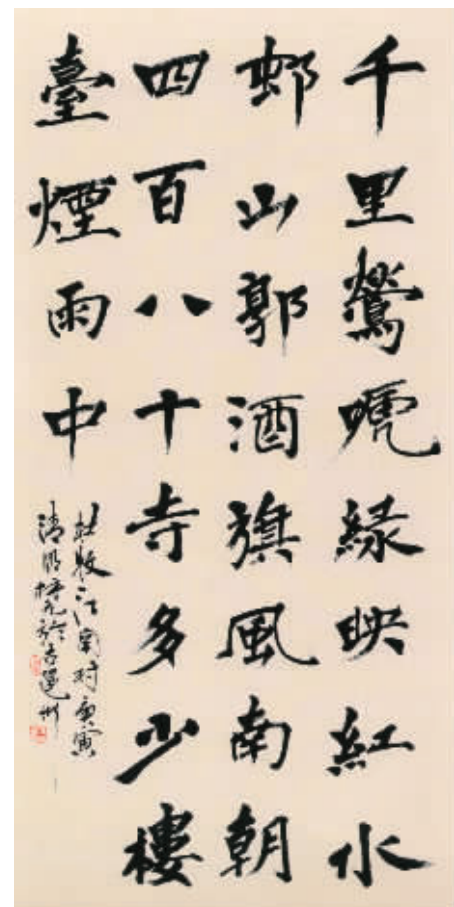 千里鶯嗁緑映紅水
邨山郭酒旗風南朝
四百八十寺多少樓
臺煙雨中
杜牧江南詩庚寅
清明於古